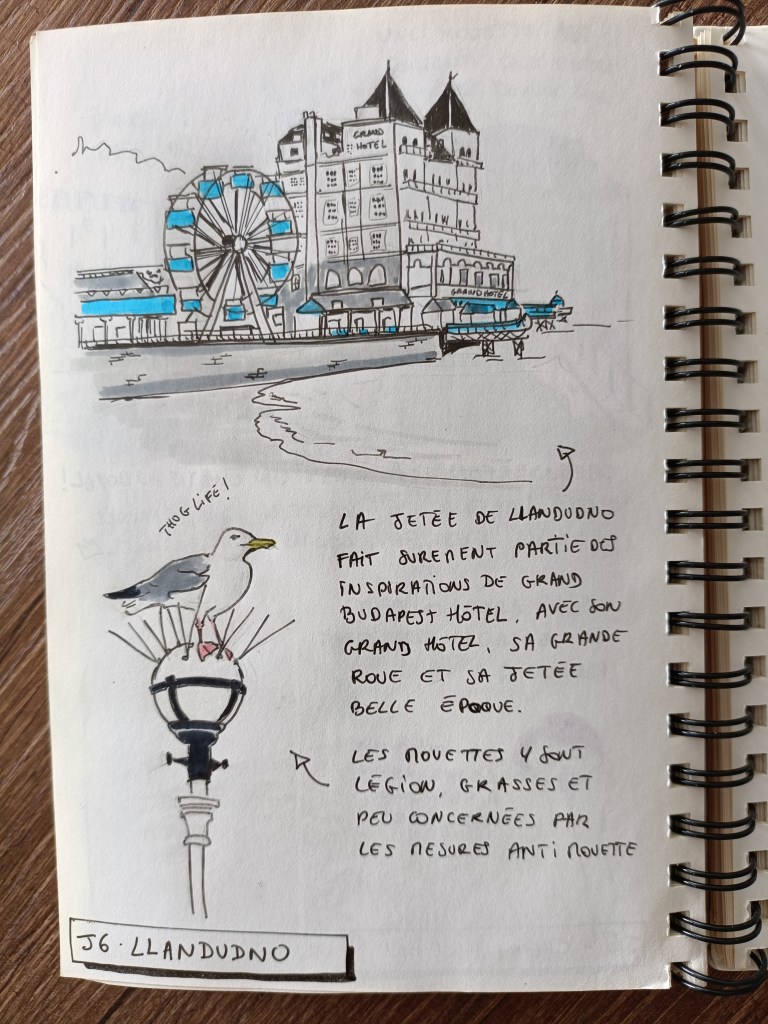 GRAND
HOTEL
GRAND HOTEL
THUG LIFE!
LA JETÉE DE LLANDUDNO
FAIT SUREMENT PARTIE DES
INSPIRATIONS DE GRAND
BUDAPEST HÔTEL. AVEC SON
GRAND HÔTEL, SA GRANDE
ROUE ET SA JETÉE
BELLE ÉPOQUE.
LES MOUETTES Y SONT
LÉGION, GRASSES ET
PEU CONCERNÉES PAR
LES MESURES ANTI MOUETTE
J6. LLANDUDNO